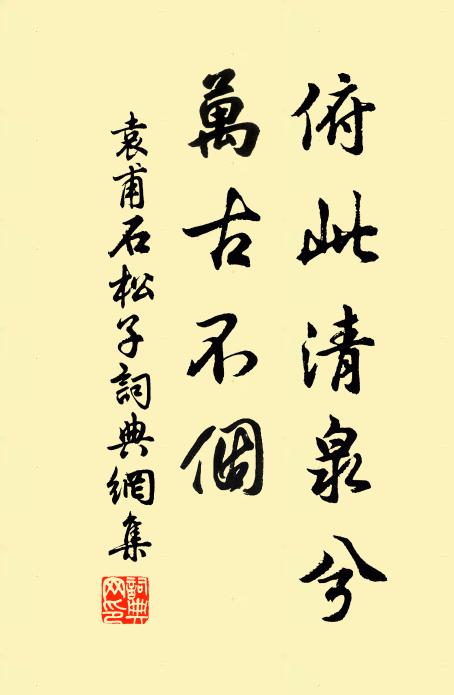 俯此清泉兮
萬古不個
袁甫石松子詞典網集
詞典网印